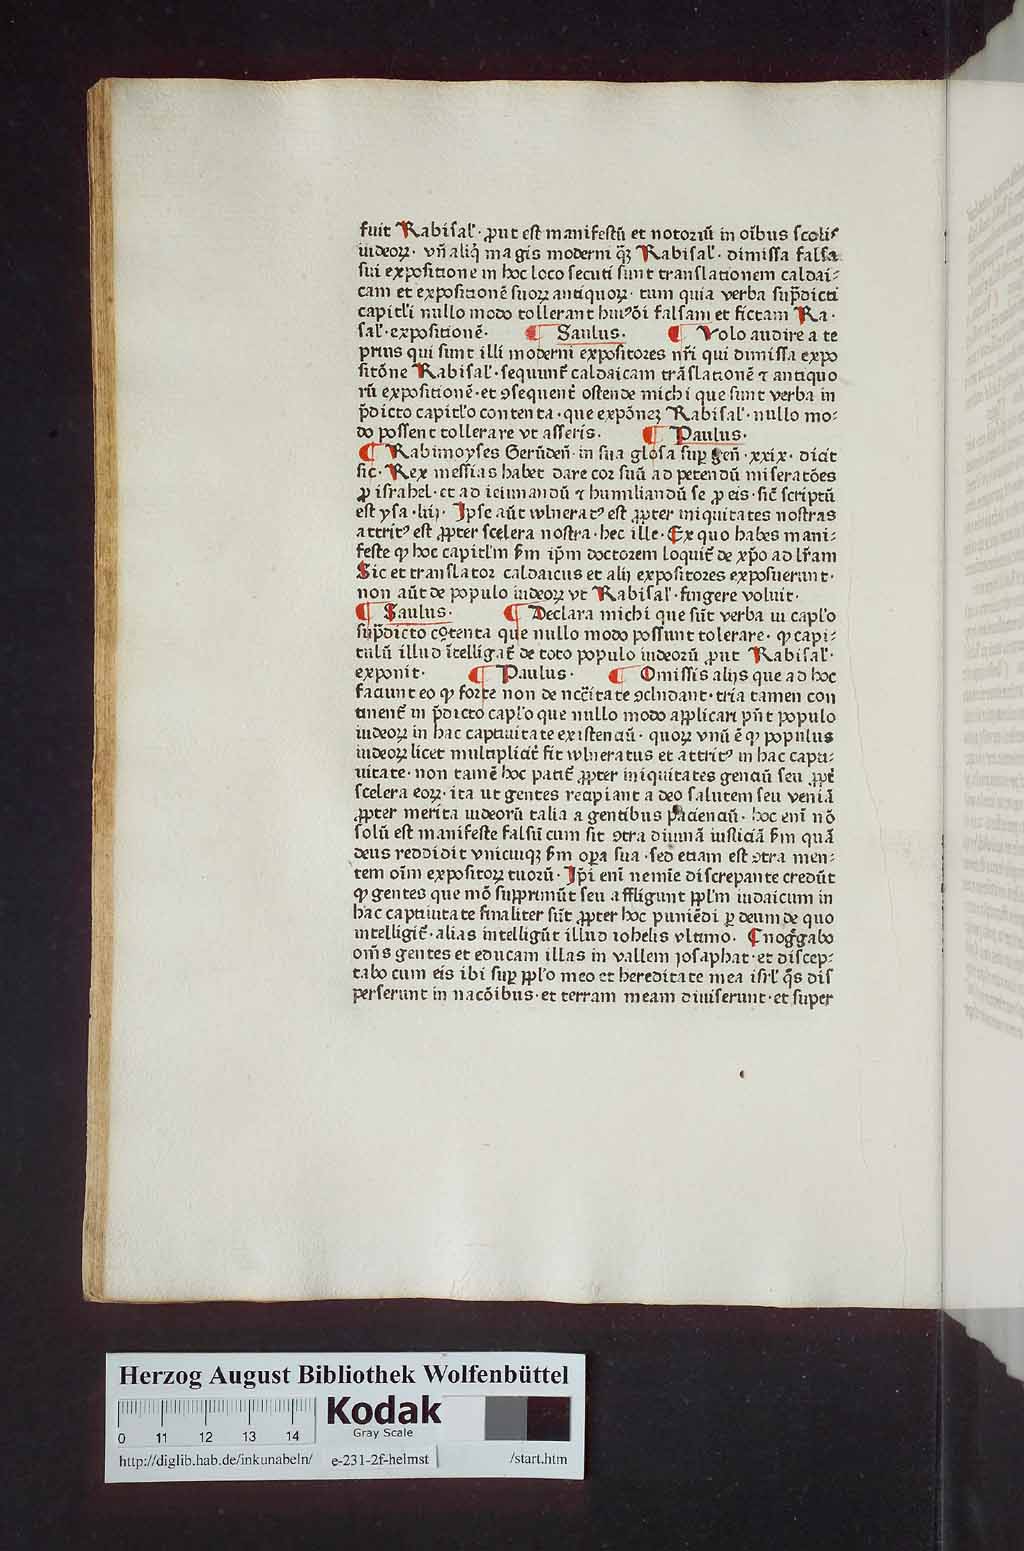 fuit Rabisal̃· ꝓut est manifestũ et notoriũ in oĩbus scolis
iudeoꝝ· vñ aliqͥ magis moderni qͣꝫ Rabisal̃· dimissa falsa
sui expositione in hoc loco secuti sunt translationem caldai⸗
cam et expositionẽ suoꝝ antiquoꝝ· tum quia verba sup̃dicti
capitl̃i nullo modo tollerant huiꝰõi falsam et fictam Ra·
sal̃· expositionẽ· ¶ Saulus· ¶ Volo audire a te
prius qui sunt illi moderni expositores nr̃i qui dimissa expo
sitõne Rabisal̃· sequunt᷑ caldaicam trãslationẽ ⁊ antiquo
rũ expositionẽ· et ꝯsequent᷑ ostende michi que sunt verba in
p̃dicto capitl̃o contenta· que expõneʒ Rabisal̃· nullo mo⸗
do possent tollerare vt asseris· ¶ Paulus·
¶ Rabimoyses Gerũdeñ· in sua glosa suꝑ geñ· xxix· dicit
sic· Rex messias habet dare cor suũ ad petendũ miseratões
ꝓ israhel· et ad ieiunandũ ⁊ humiliandũ se ꝓ eis· sic̃ scriptũ
est ysa· liij· Ipse aũt vulneratꝰ est ꝓpter iniquitates nostras
attritꝰ est ꝓpter scelera nostra· hec ille· Ex quo habes mani⸗
feste ꝙ hoc capitl̃m ẜm ip̃m doctorem loquit᷑ de xp̃o ad lr̃am
Sic et translator caldaicus et alij expositores exposuerunt·
non aũt de populo iudeoꝝ vt Rabisal̃· fingere voluit·
¶ Saulus· ¶ Declara michi que sũt verba in capl̃o
sup̃dicto cõtenta que nullo modo possunt tolerare· ꝙ capi⸗
tulũ illud ĩtelligat᷑ de toto populo iudeorũ ꝓut Rabisal̃·
exponit· ¶ Paulus· ¶ Omissis alijs que ad hoc
faciunt eo ꝙ forte non de nc̃c̃itate ꝯcludant· tria tamen con
tinent᷑ in p̃dicto capl̃o que nullo modo applicari pñt populo
iudeoꝝ in hac captiuitate existenciũ· quoꝝ vnũ ẽ ꝙ populus
iudeoꝝ licet multiplicit᷑ sit vulneratus et attritꝰ in hac capti⸗
uitate· non tamẽ hoc patit᷑ ꝓpter iniquitates genciũ seu ꝓpt᷑
scelera eoꝝ· ita ut gentes recipiant a deo salutem seu veniã
ꝓpter merita iudeorũ talia a gentibus paciencũ· hoc enĩ nõ
solũ est manifeste falsũ cum sit ꝯtra diuinã iusticiã ẜm quã
deus reddidit vnicuiqꝫ ẜm oꝑa sua· sed etiam est ꝯtra men⸗
tem oĩm expositoꝝ tuorũ· Ip̃i enĩ nemĩe discrepante credũt
ꝙ gentes que mõ supprimũt seu affligunt ppl̃m iudaicum in
hac captiuitate finaliter sũt ꝓpter hoc puniẽdi ꝑ deum de quo
intelligit᷑· alias intelligũt illud iohelis vltimo· Cnog̃gabo
om̃s gentes et educam illas in vallem josaphat· et discep⸗
tabo cum eis ibi suꝑ ppl̃o meo et hereditate mea isrl̃ qͦs dis
perserunt in nacõibus· et terram meam diuiserunt· et super
Herzog August Bibliothek Wolfenbüttel
Kodak
Gray Scale
0 11 12 13 14
http://diglib.hab.de/inkunabeln/ e-231-2f-helmst /start.htm